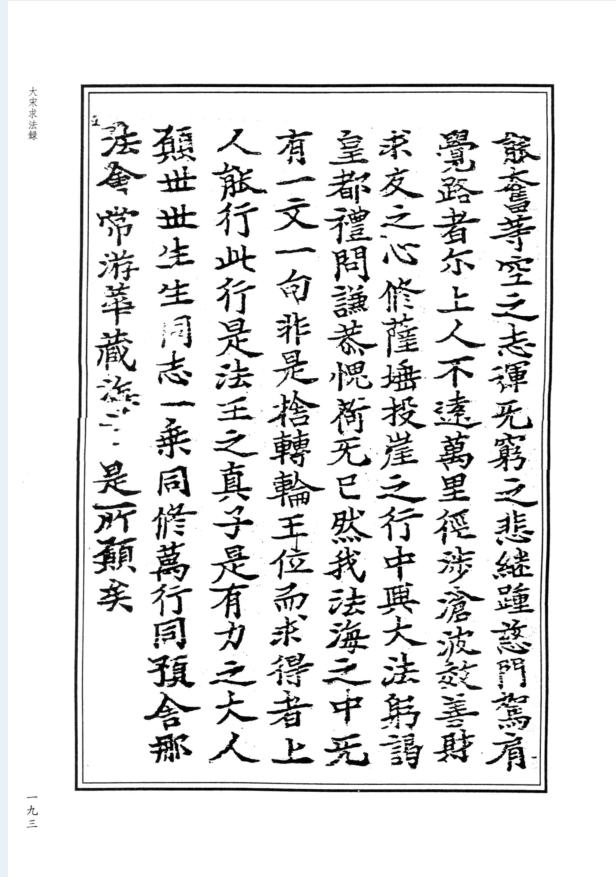 能奮等空之志運无窮之悲継踵慈門駕肩
覺路者尓上人不遠萬里徑涉滄波效善財
求友之心修薩埵投崖之行中興大法躬謁
皇都禮問謙恭愧荷无已然我法海之中无
有一文一句非是捨轉輪王位而求得者上
人能行此行是法王之真子是有力之大人
願世世生生同志一乗同修萬行同預舎那
法會常游華藏 是所願矣
大宋求法録
一九三